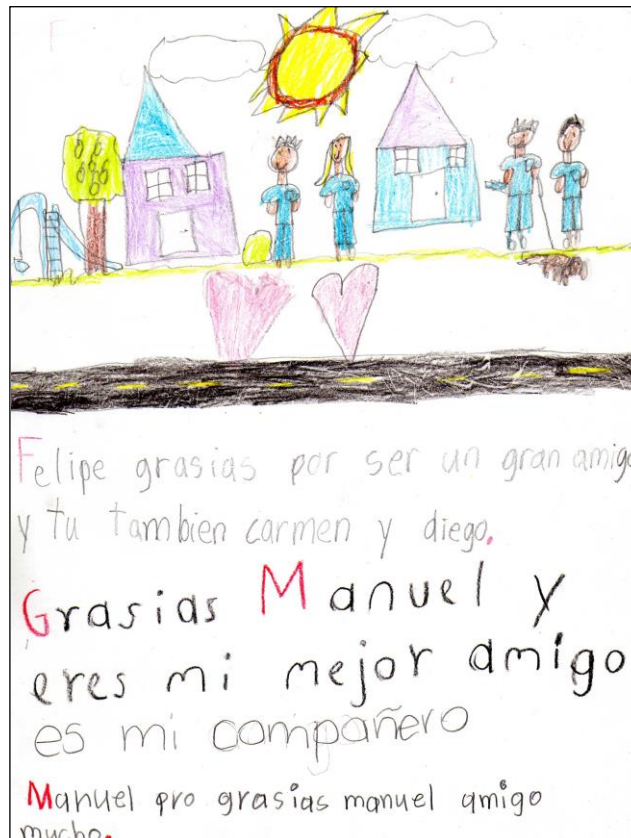 Felipe grasias por ser un gran amigo
y tu tambien carmen y diego.
Grasias Manuel y
eres mi mejor amigo
es mi compañero
Manuel pro grasias manuel amigo
mucho.